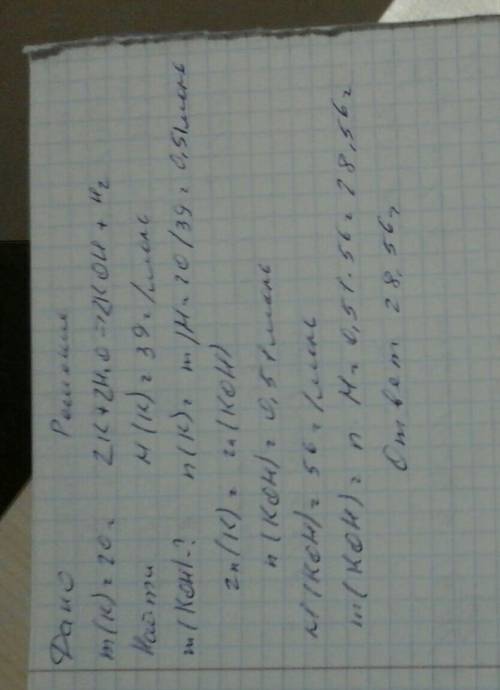 Дано Решение
m(K)=20г 2K+2H₂O=>2KOH+H₂
Найти M(K)=39г/моль
m(KOH)-? n(K)=m/M=20/39=0,51моль
2n(K)=2n(KOH)
n(KOH)=0,51моль
M(KOH)=56г/моль
m(KOH)=n M=0,51·56=28,56г
Ответ 28,56г